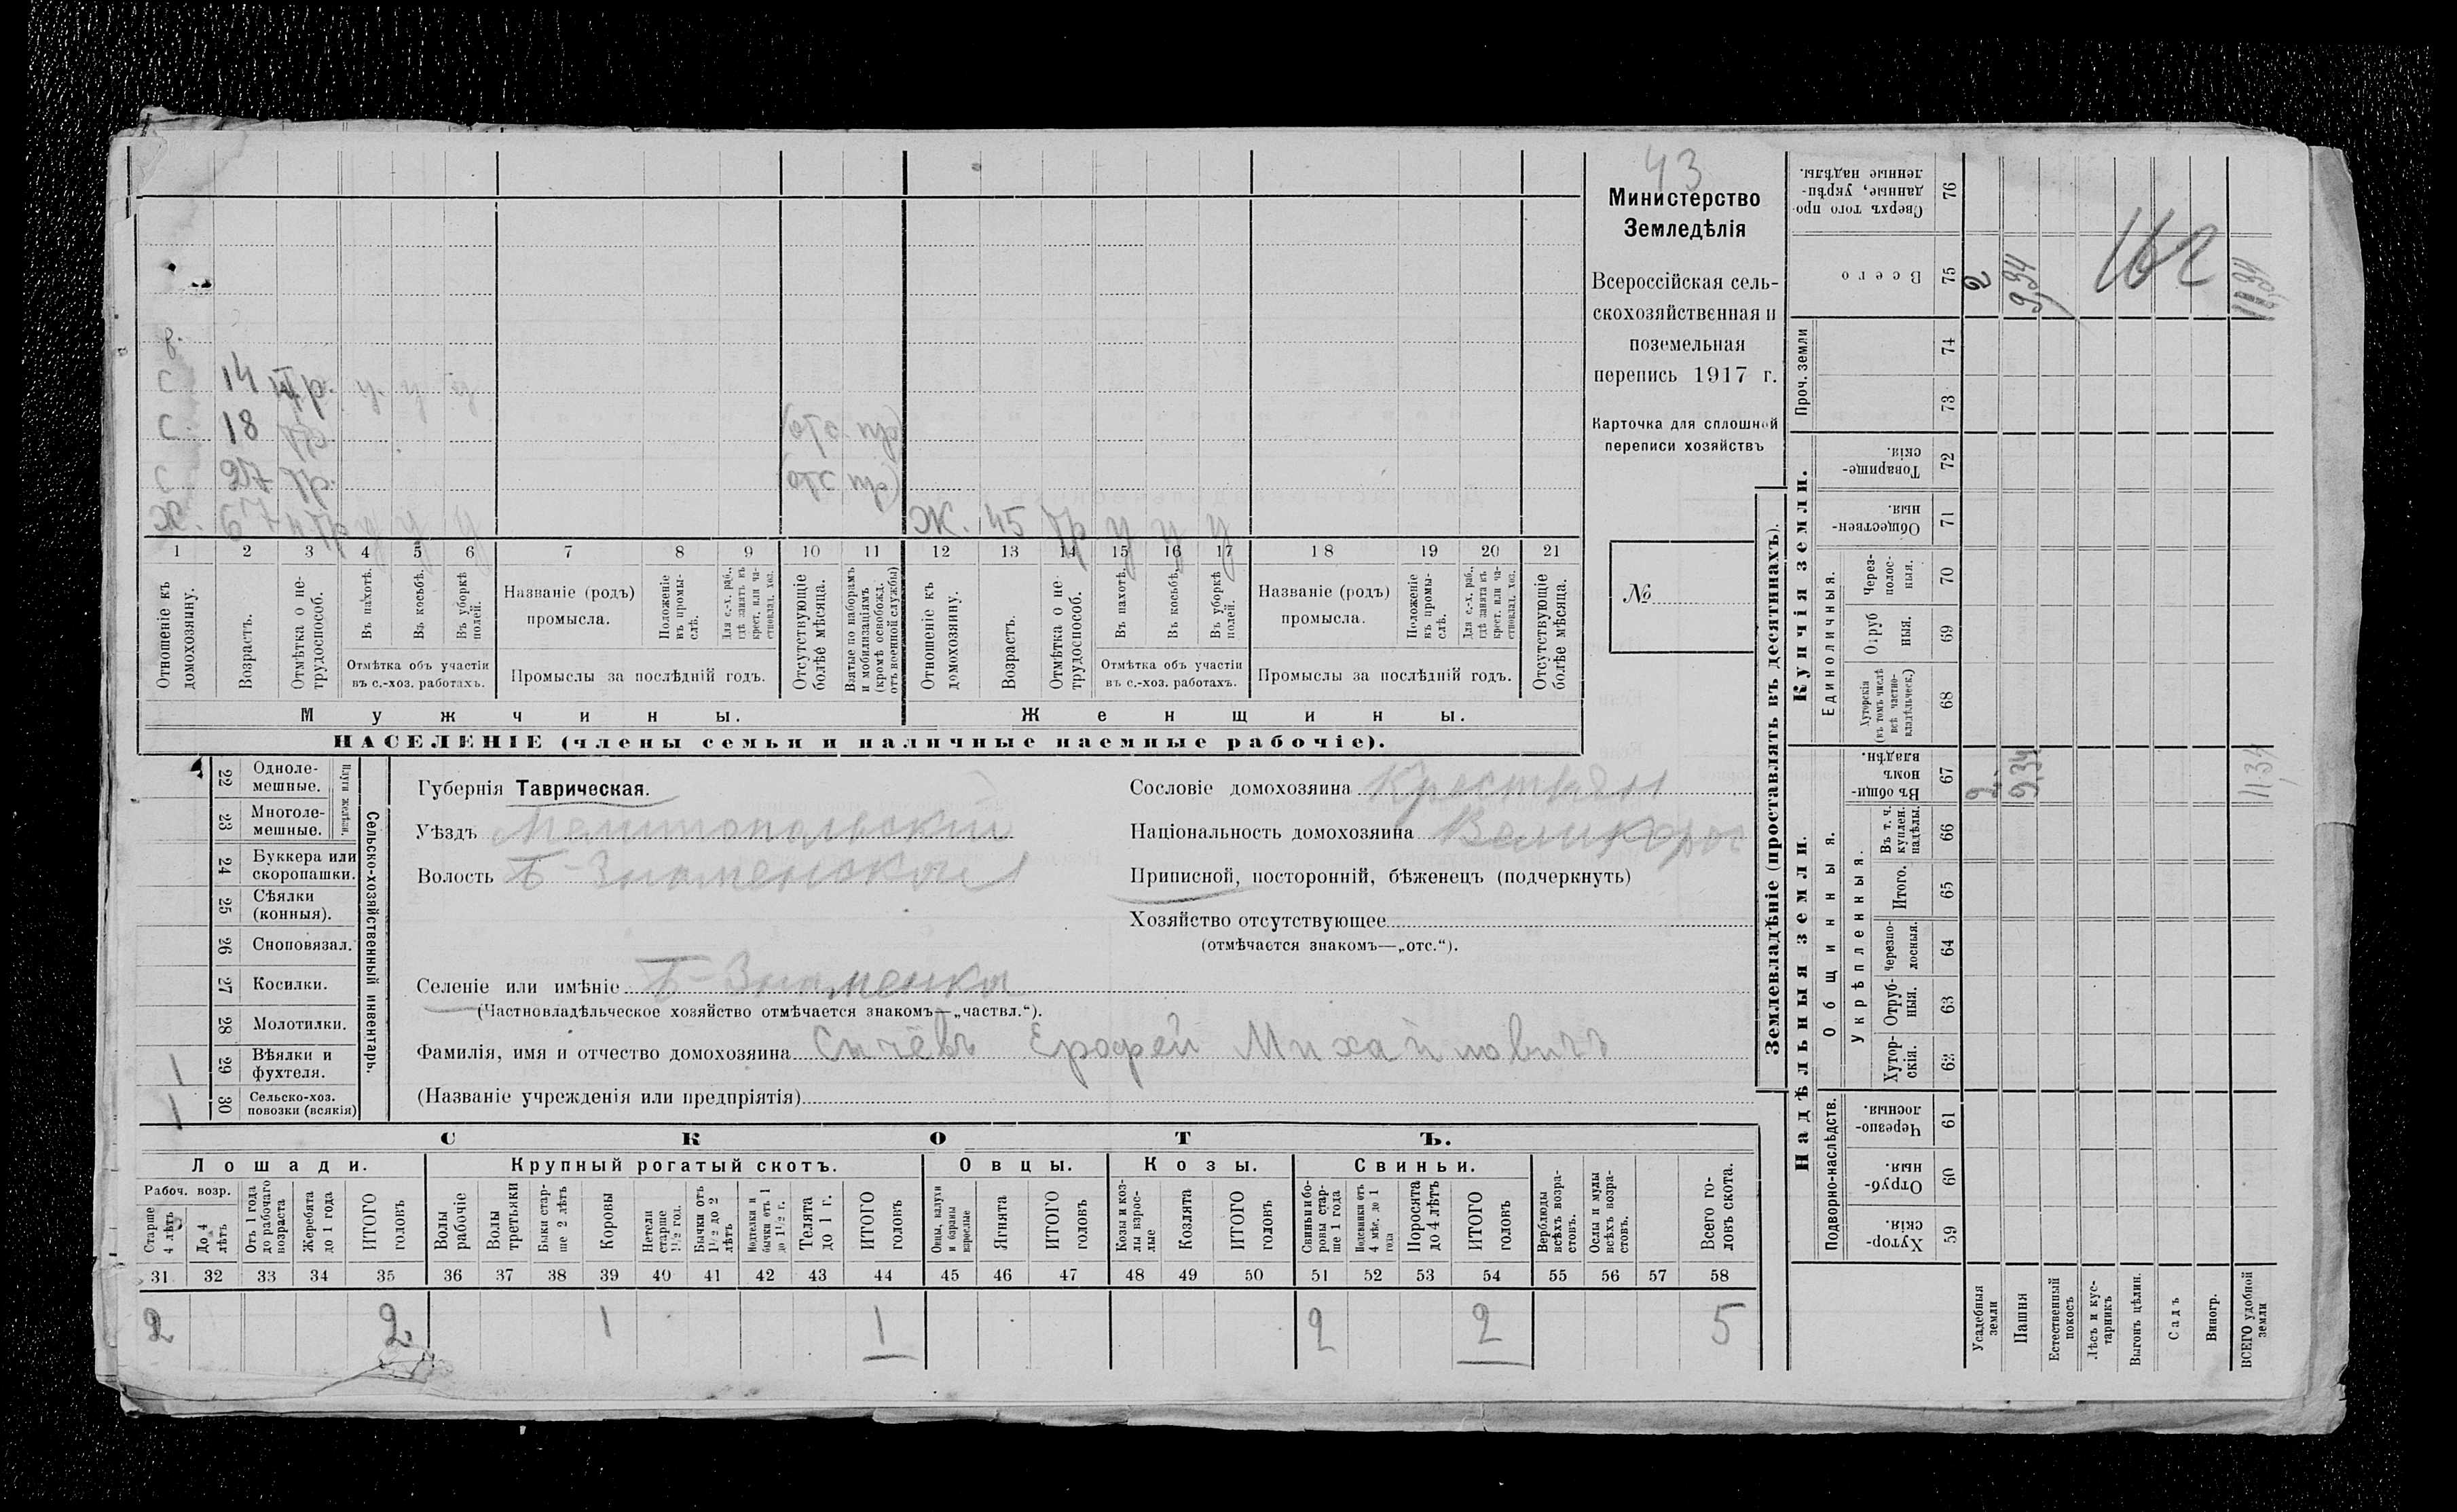 43
Министерство
Земледѣлія
Всероссійская сель-
скохозяйственная и
поземельная
перепись 1917 г.
Карточка для сплошной
переписи хозяйствъ
№
в.
с. 14 тр. у. у у
с. 18 тр (отс. пр)
с 27 тр. (отс пр)
х. 67 н тр у у у Ж. 45 тр у у у
1 2 3 4 5 6 7 8 9 10 11 12 13 14 15 16 17 18 19 20 21
Отношеніе къ домохозяину.
Возрастъ.
Отмѣтка о не-трудоспособ.
Въ пахотѣ.
Въ косьбѣ.
Въ уборкѣ полей.
Отмѣтка объ участіи
въ с.-хоз. работахъ.
Названіе (родъ)
промысла.
Положеніе въ промы-слѣ.
Для с.-х. раб., гдѣ занятъ въ крест. или ча-стновлад. хоз.
Промыслы за послѣдній годъ.
Отсутствующіе болѣе мѣсяца.
Взятые по наборамъ и мобилизаціямъ (кромѣ освобожд. отъ военной службы)
Отношеніе къ домохозяину.
Возрастъ.
Отмѣтка о не-трудоспособ.
Въ пахотѣ.
Въ косьбѣ.
Въ уборкѣ полей.
Отмѣтка объ участіи
въ с.-хоз. работахъ.
Названіе (родъ)
промысла.
Положеніе въ промы-слѣ.
Для с.-х. раб., гдѣ занята въ крест. или ча-стновлад. хоз.
Промыслы за послѣдній годъ.
Отсутствующіе болѣе мѣсяца.
Мужчины. Женщины.
НАСЕЛЕНІЕ (члены семьи и наличные наемные рабочіе).
Сельско-хозяйственный инвентарь.
Плуги желѣзн.
22 Одноле-мешные.
23 Многоле-мешные.
24 Буккера или скоропашки.
25 Сѣялки (конныя).
26 Сноповязал.
27 Косилки.
28 Молотилки.
1 29 Вѣялки и фухтеля.
1 30 Сельско-хоз. повозки (всякія)
Губернія Таврическая.
Уѣздъ Мелитопольский
Волость Б-Знаменская
Селеніе или имѣніе Б-Знаменка
(Частновладѣльческое хозяйство отмѣчается знакомъ—„частвл.“).
Фамилія, имя и отчество домохозяина Сычёвъ Ерофей Михайловичъ
(Названіе учрежденія или предпріятія)
Сословіе домохозяина Крестьян
Національность домохозяина Великорос
Приписной, посторонній, бѣженецъ (подчеркнуть)
Хозяйство отсутствующее
(отмѣчается знакомъ—„отс.“).
СКОТЪ.
Лошади. Крупный рогатый скотъ. Овцы. Козы. Свиньи.
Рабоч. возр.
Старше 4 лѣтъ
До 4 лѣтъ
Отъ 1 года до рабочаго возраста
Жеребята до 1 года
ИТОГО головъ
Волы рабочіе
Волы третьяки
Быки стар-ше 2 лѣтъ
Коровы
Нетели старше 1½ год.
Быки отъ 1½ до 2 лѣтъ
Подтелки и бычки отъ 1 до 1½ г.
Телята до 1 г.
ИТОГО головъ
Овцы, валухи и бараны взрослые
Ягнята
ИТОГО головъ
Козы и коз-лы взрос-лые
Козлята
ИТОГО головъ
Свиньи и бо-ровы стар-ше 1 года
Подсвинки отъ 4 мѣс. до 1 года
Поросята до 4 лѣтъ
ИТОГО головъ
Верблюды всѣхъ возра-стовъ.
Ослы и мулы всѣхъ возра-стовъ.
Всего го-ловъ скота.
31 32 33 34 35 36 37 38 39 40 41 42 43 44 45 46 47 48 49 50 51 52 53 54 55 56 57 58
2 2 1 1 2 2 5
Землевладѣніе (проставлять въ десятинахъ).
Купчія земли.
Надѣльныя земли.
Сверхъ того про-данные, укрѣп-ленные надѣлы. 76
Всего 75 2 9,34 11,34
162
Проч. земли 74
73
Товарище-скія. 72
Обществен-ныя. 71
Единоличныя.
Через-полос-ныя. 70
Отруб ныя. 69
Хуторскія (въ томъ числѣ всѣ частно-владѣльческ.) 68
Общинныя.
Въ общи-номъ владѣн. 67 2 9,34 11,34
Укрѣпленныя.
Въ т. ч. куплен. надѣлы. 66
Итого. 65
Черезпо-лосныя. 64
Отруб-ныя. 63
Хутор-скія. 62
Подворно-наслѣдств.
Черезпо-лосныя. 61
Отруб-ныя. 60
Хутор-скія. 59
Усадебныя земли
Пашня
Естественный покосъ
Лѣсъ и кус-тарникъ
Выгонъ цѣлин.
Садъ
Виногр.
ВСЕГО удобной земли